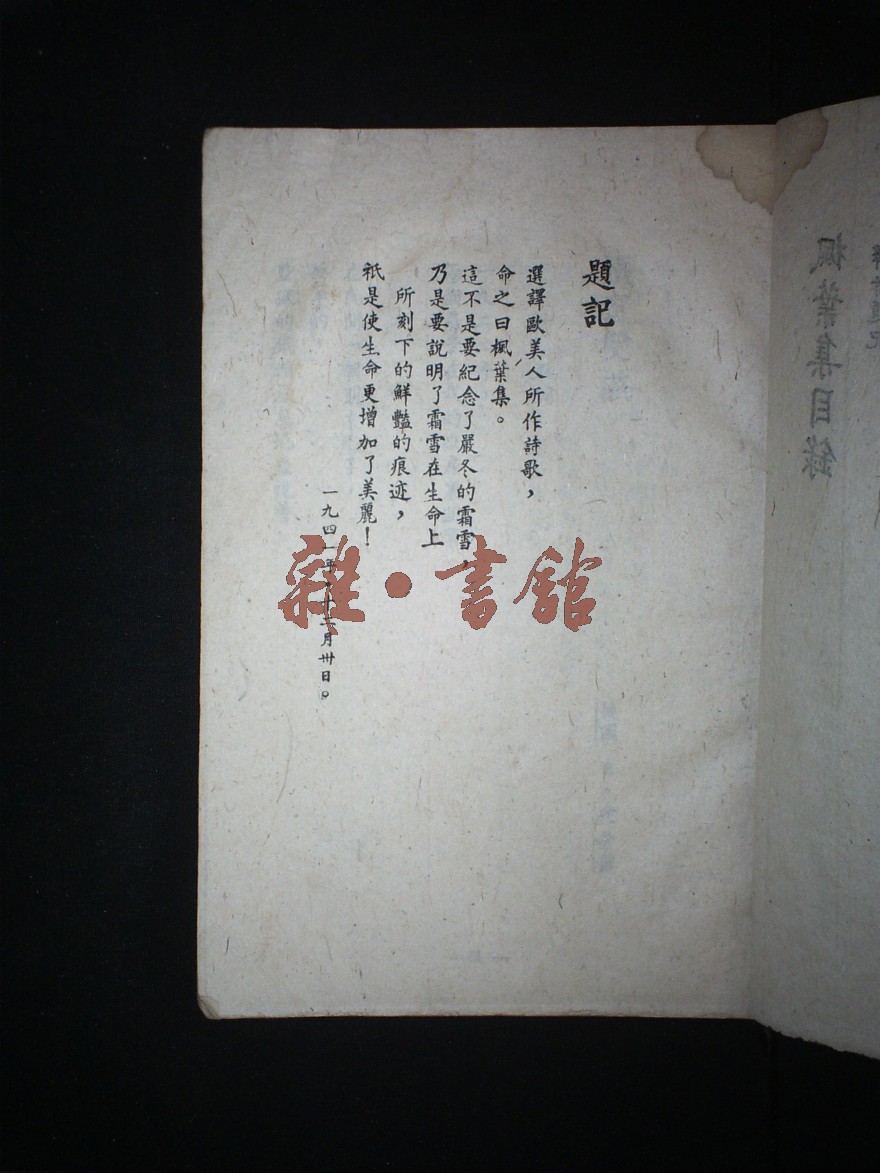 題記
選譯歐美人所作詩歌，
命之曰楓葉集。
這不是要紀念了嚴冬的霜雪，
乃是要說明了霜雪在生命上
所刻下的鮮豔的痕迹，
祇是使生命更增加了美麗！
一九四一年，十二月卅日。
雜·書館
楓葉集目錄